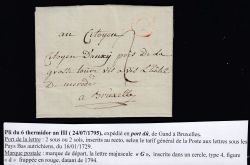 au Citoyen
Citoyen Dauxy près de la
grosse tour vis a vis
de monde
a Bruxelle
Pli du 6 thermidor an III ( 24/07/1795), expédié en port dû, de Gand à Bruxelles.
Port de la lettre : 2 sous ou 2 sols, inscrits au recto, selon le tarif général de la Poste aux lettres sous les
Pays Bas autrichiens, du 18/01/1729.
Marque postale : marque de départ, la lettre majuscule « G », inscrite dans un cercle, type 4.
« d » frappée en rouge, datant de 1794.